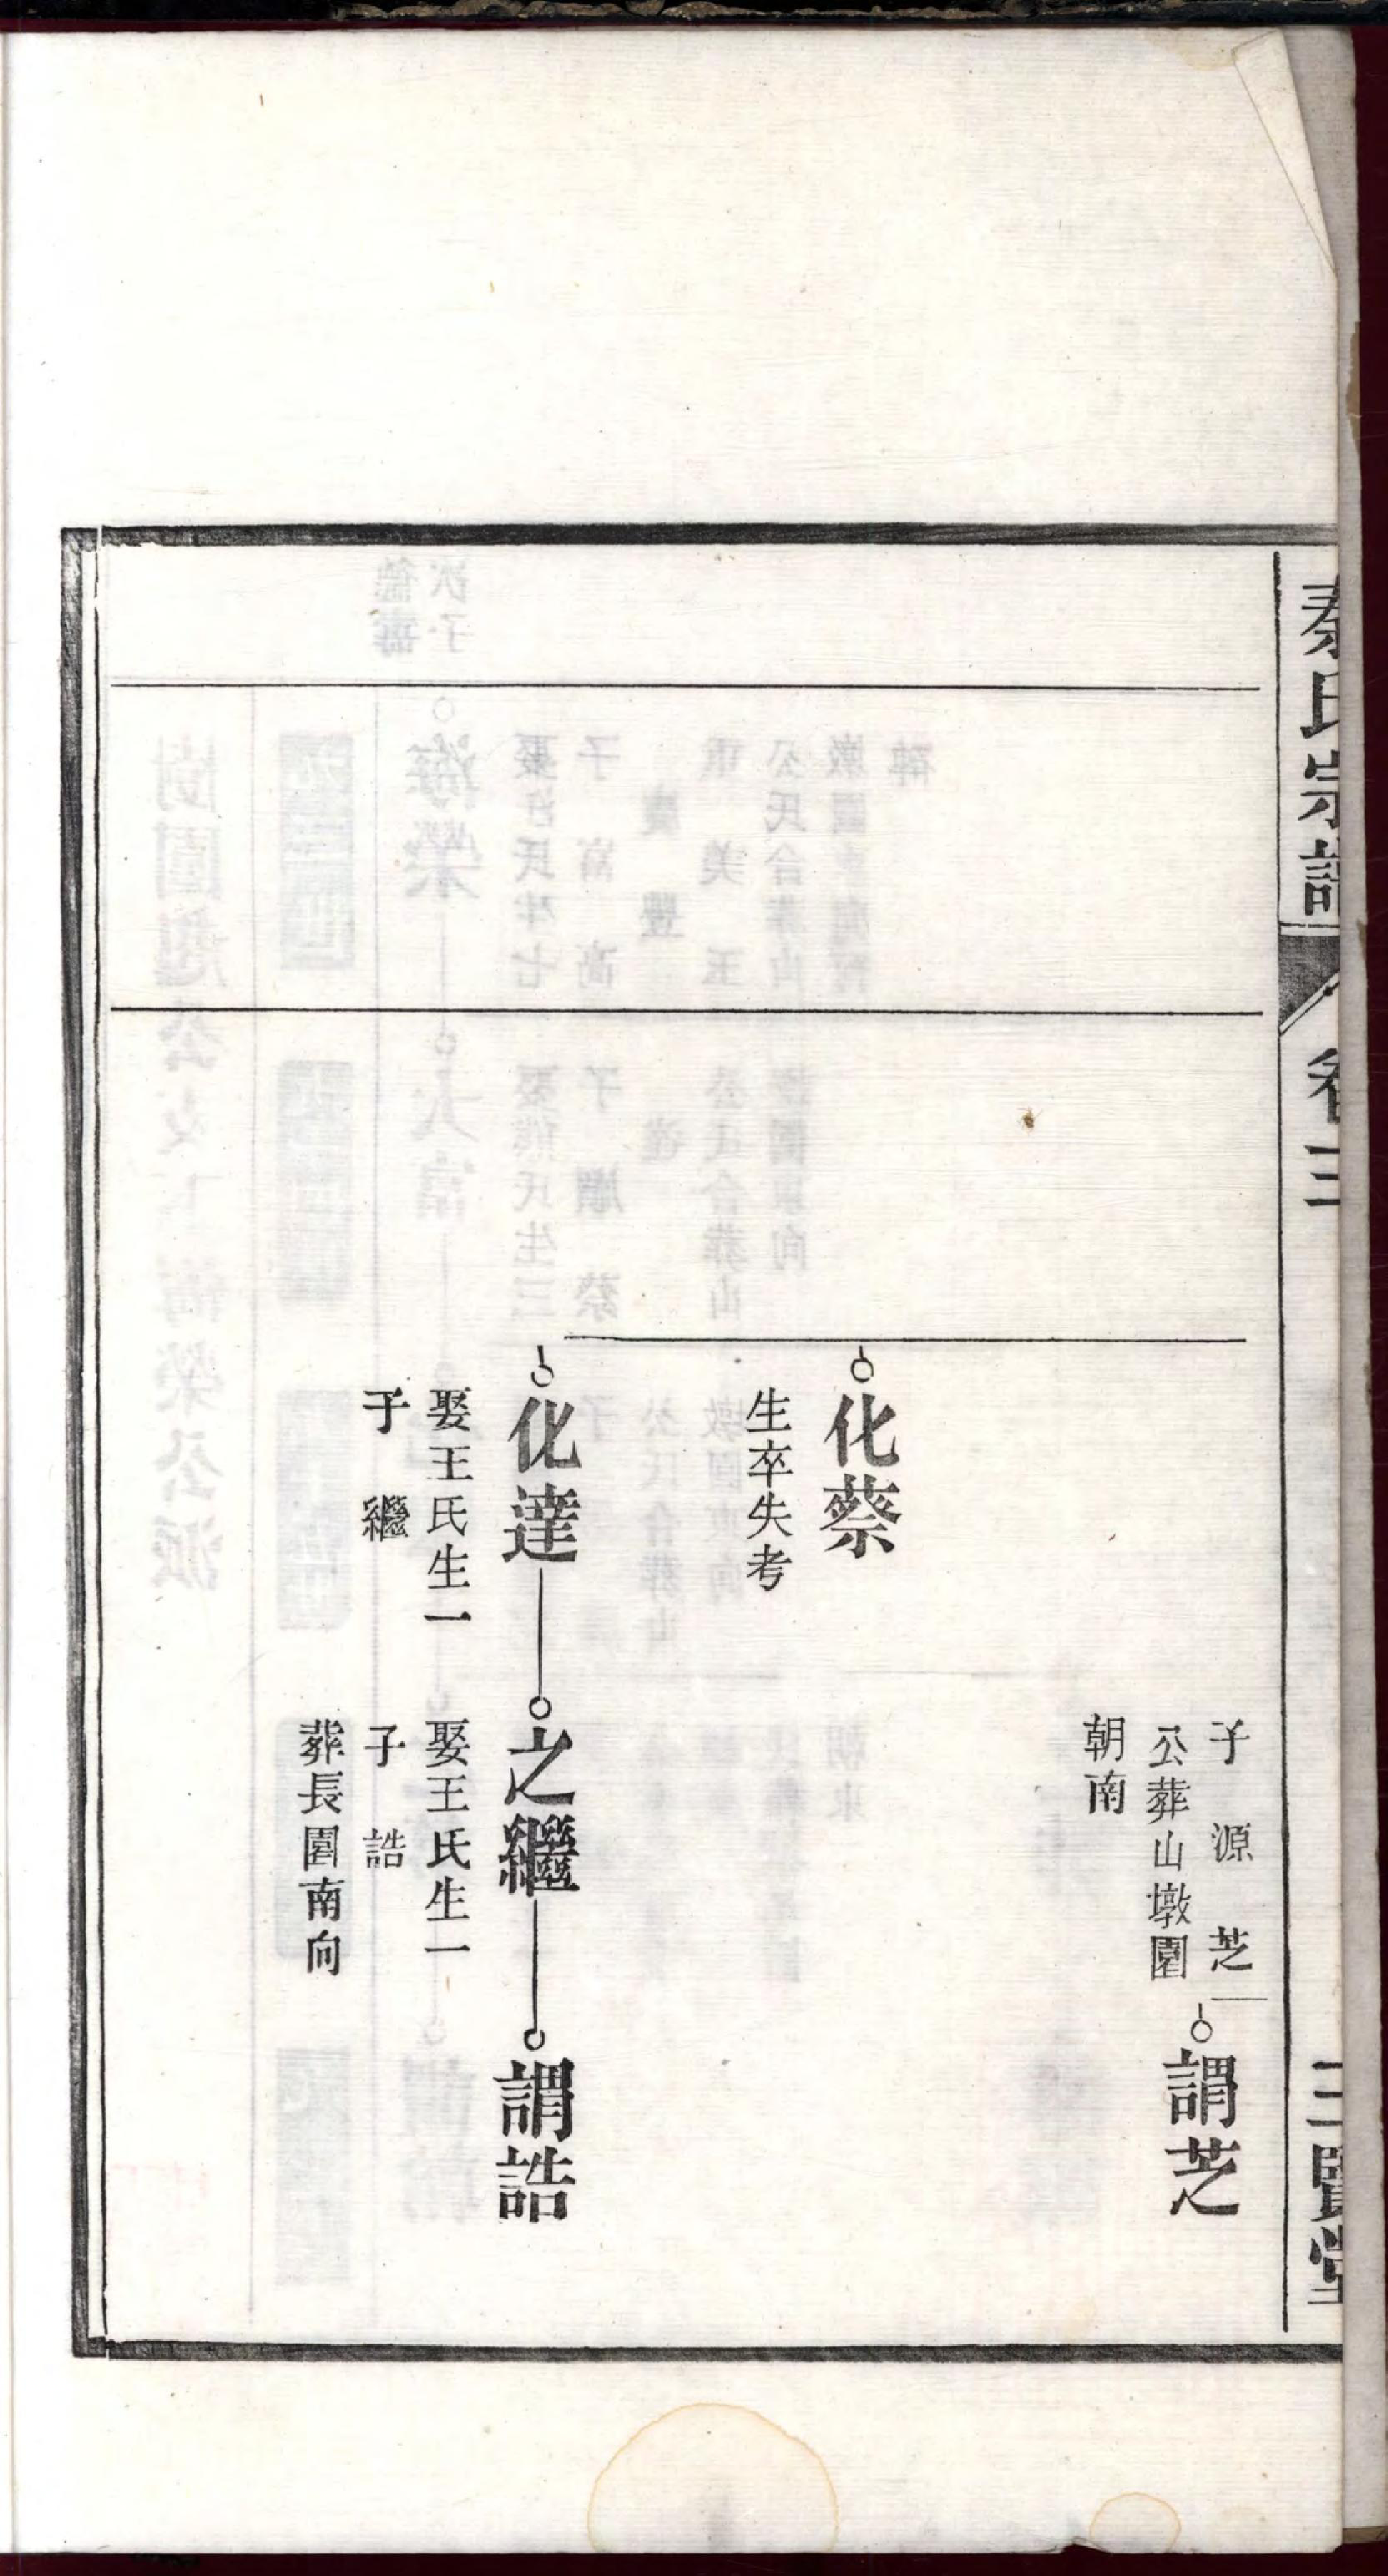 秦氏宗譜
卷三
三賢堂
子　源　芝
公葬山墩園
朝南
謂芝
化蔡
生卒失考
化達
娶王氏生一
子　繼
之繼
娶王氏生一
子　誥
葬長園南向
謂誥